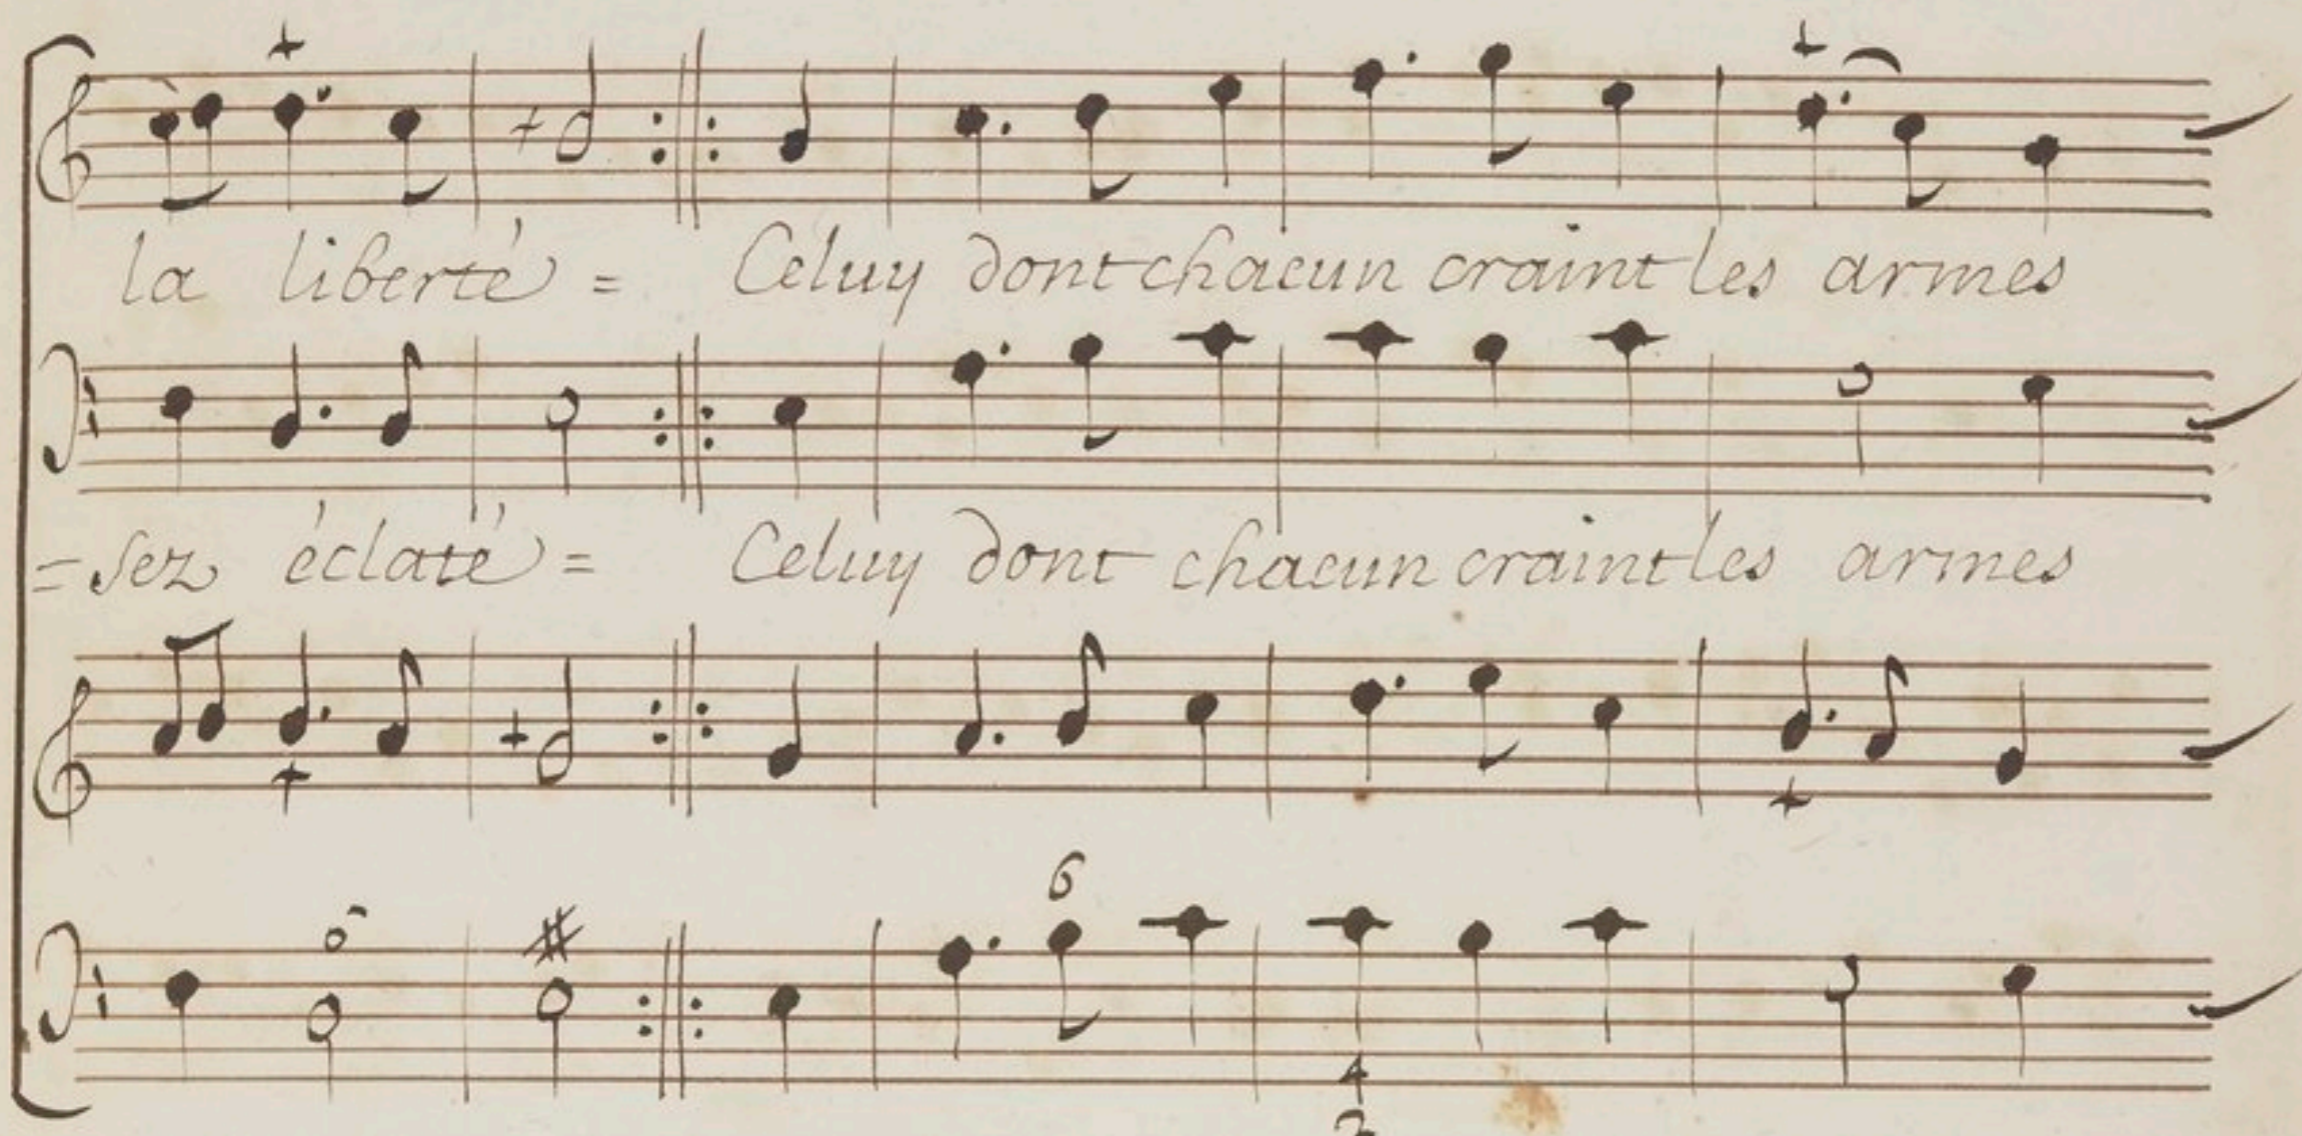 la liberté = Celuy dont chacun craint les armes
=sez éclaté = Celuy dont chacun craint les armes
6
4